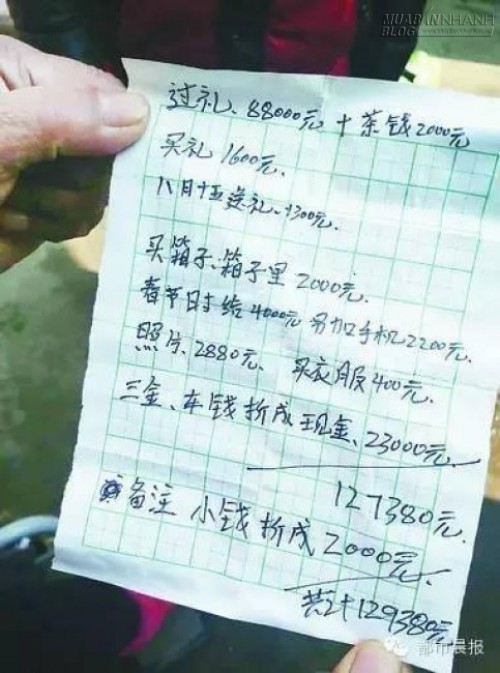 MUABANNHANH
BLOG
过礼、88000元 + 茶钱2000元
买礼1600元.
八月十五送礼、1300元.
买箱子、箱子里2000元.
春节时给4000元 另加手机2200元.
照片、2880元、 买衣服400元.
三金、车钱折成现金、23000元.
127380元.
备注 小钱折成2000元.
共计129380元
都市晨报